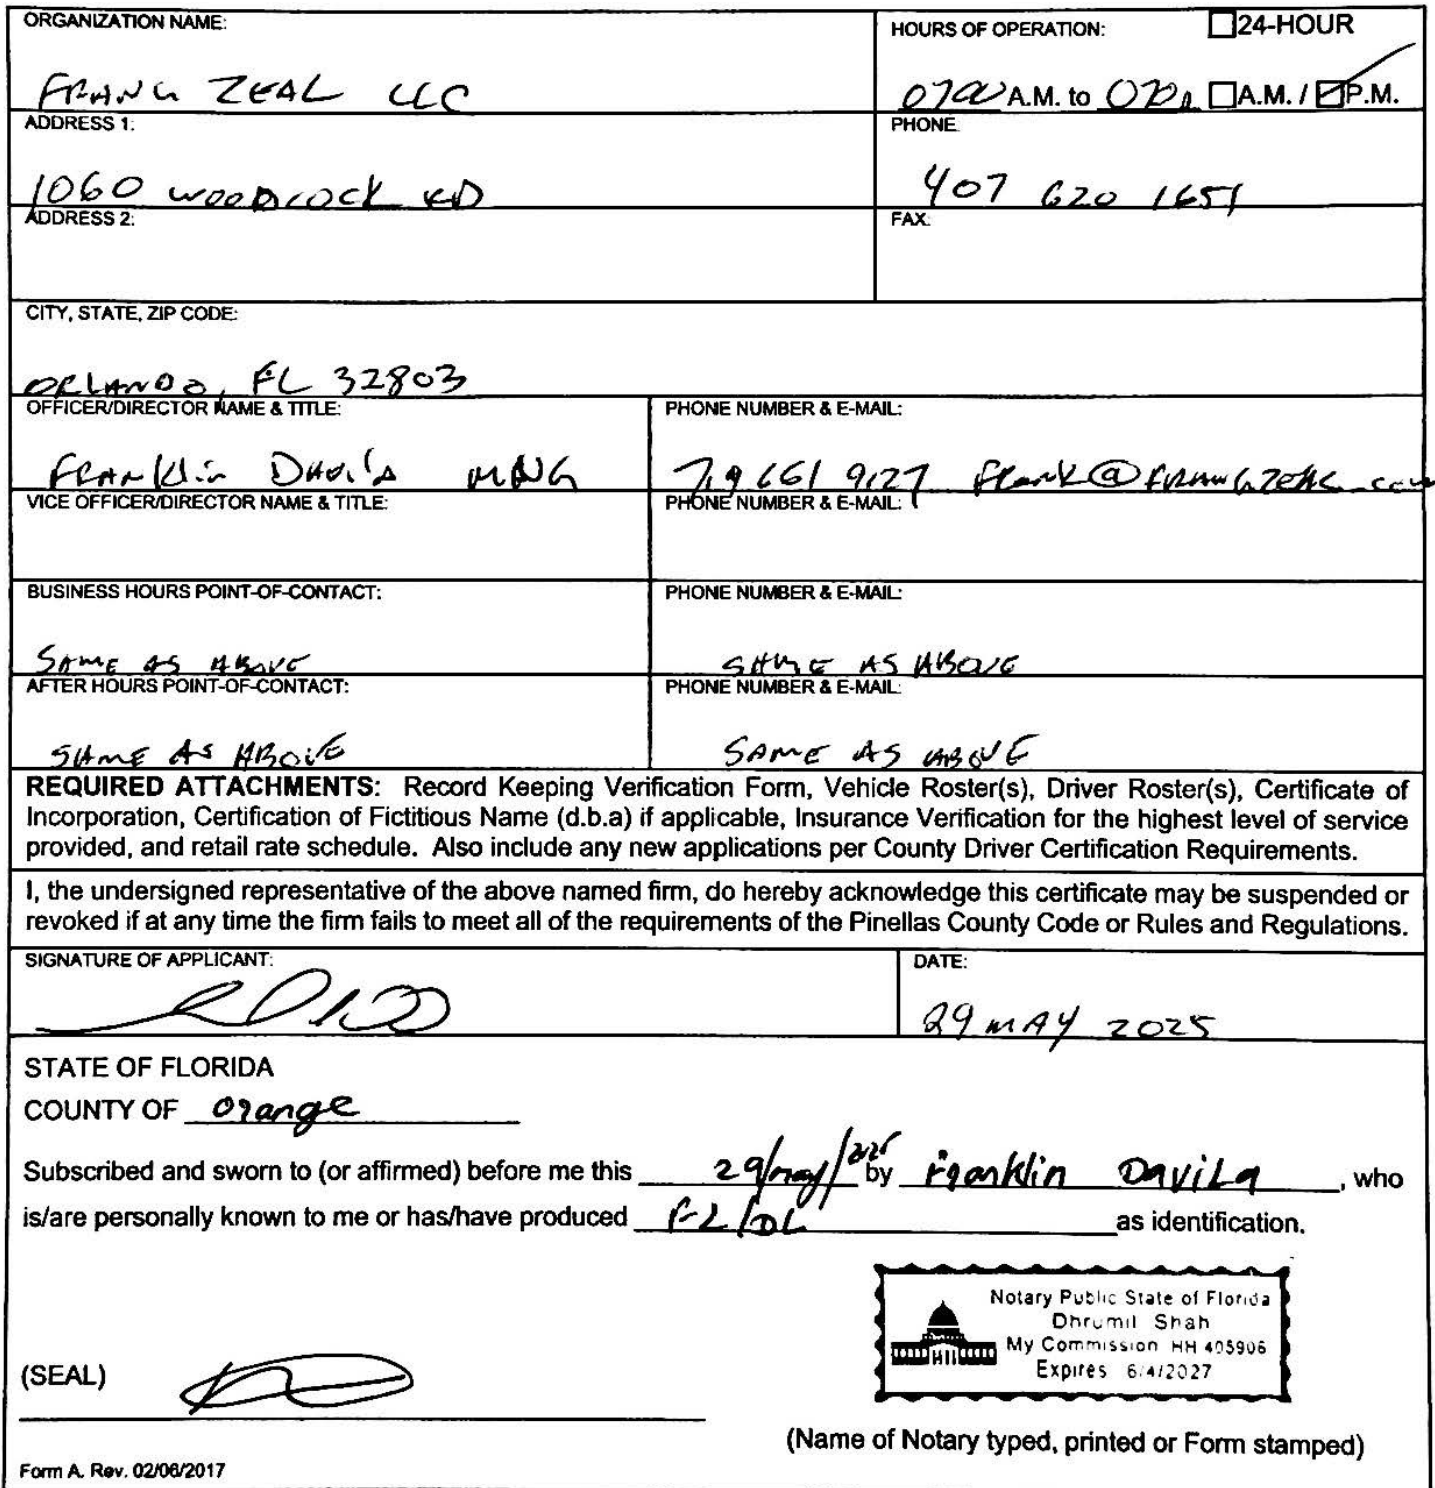 ORGANIZATION NAME:
HOURS OF OPERATION: 24-HOUR
FRANG ZEAL LLC
0700 A.M. to 070 A.M. / P.M.
ADDRESS 1:
PHONE
1060 WOODCOCK RD
407 620 1651
ADDRESS 2:
FAX:
CITY, STATE, ZIP CODE:
ORLANDO, FL 32803
OFFICER/DIRECTOR NAME & TITLE:
PHONE NUMBER & E-MAIL:
Franklin Davila MNG
661 9127
VICE OFFICER/DIRECTOR NAME & TITLE:
PHONE NUMBER & E-MAIL:
BUSINESS HOURS POINT-OF-CONTACT:
PHONE NUMBER & E-MAIL:
SAME AS ABOVE
SAME AS ABOVE
AFTER HOURS POINT-OF-CONTACT:
PHONE NUMBER & E-MAIL:
SAME AS ABOVE
SAME AS ABOVE
REQUIRED ATTACHMENTS: Record Keeping Verification Form, Vehicle Roster(s), Driver Roster(s), Certificate of
Incorporation, Certification of Fictitious Name (d.b.a) if applicable, Insurance Verification for the highest level of service
provided, and retail rate schedule. Also include any new applications per County Driver Certification Requirements.
I, the undersigned representative of the above named firm, do hereby acknowledge this certificate may be suspended or
revoked if at any time the firm fails to meet all of the requirements of the Pinellas County Code or Rules and Regulations.
SIGNATURE OF APPLICANT:
DATE:
29 MAY 2025
STATE OF FLORIDA
COUNTY OF Orange
Subscribed and sworn to (or affirmed) before me this 29/may/2025 by Franklin Davila, who
is/are personally known to me or has/have produced FL/DL as identification.
Notary Public State of Florida
Dhrumil Shah
My Commission HH 405906
Expires 6/4/2027
(SEAL)
(Name of Notary typed, printed or Form stamped)
Form A. Rev. 02/06/2017